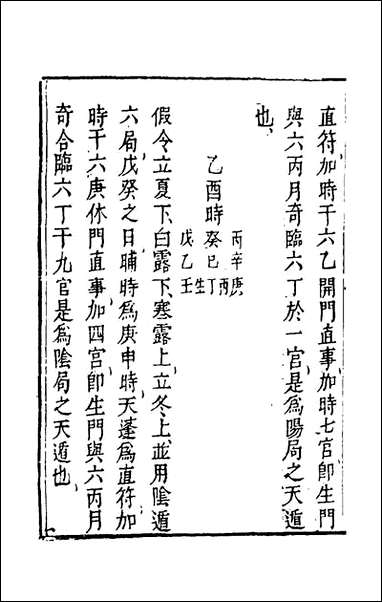 直符加時干六乙開門直事加時七宮卽生門
與六丙月奇臨六丁於一宮是爲陽局之天遁
也
丙辛庚
乙酉時癸已丁丙
生
戊乙壬
假令立夏下白露下寒露上立冬上並用陰遁
六局戊癸之日晡時爲庚申時天蓬爲直符加
時干六庚休門直事加四宮卽生門與六丙月
奇合臨六丁干九宮是爲陰局之天遁也